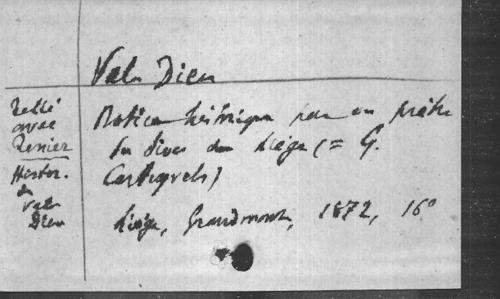 Val Dieu
Relié
avec
Renier
Histor.
du
Val
Dieu
Notice historique par un prêtre
du dioc. de Liége (= G.
Liége, Grandmont, 1872, 16°